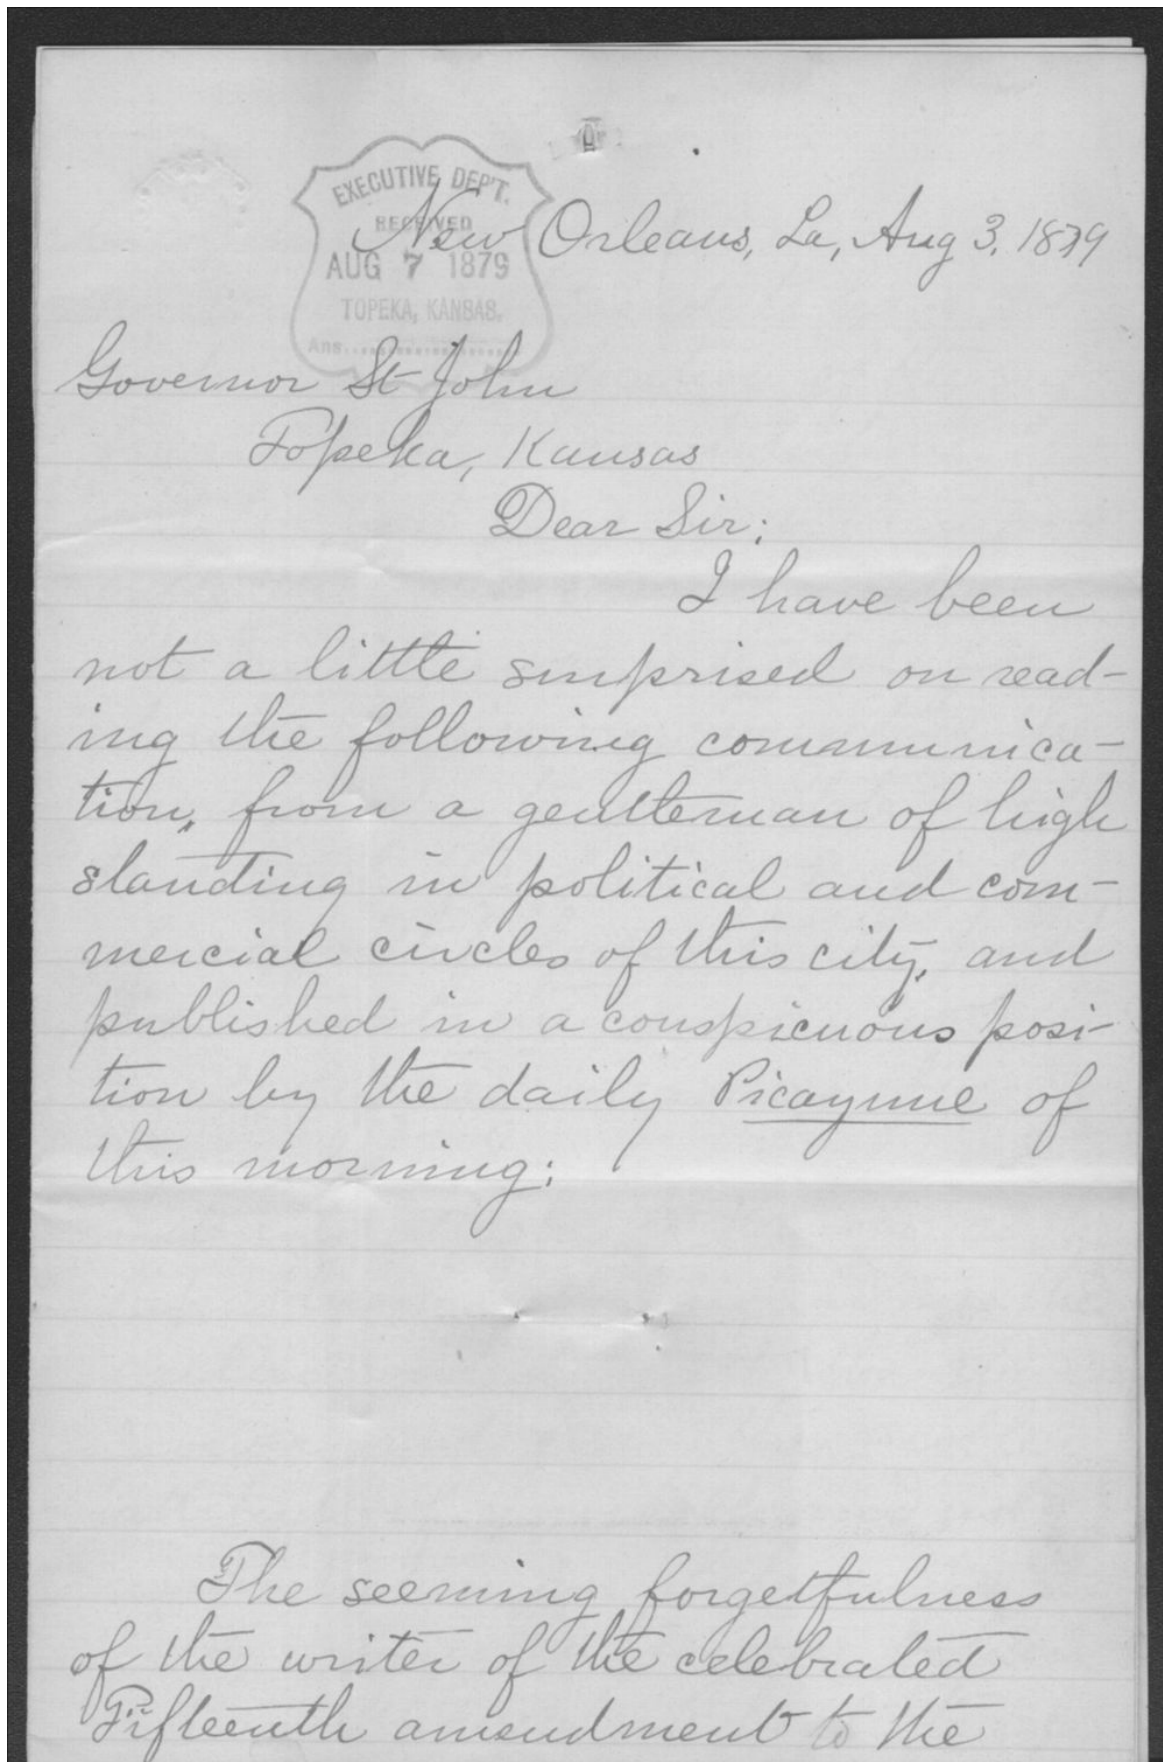 EXECUTIVE DEP'T.
RECEIVED
AUG 7 1879
TOPEKA, KANSAS.
Ans.
New Orleans, La, Aug 3, 1879
Governor St John
Topeka, Kansas
Dear Sir:
I have been
not a little surprised on read-
ing the following communica-
tion, from a gentleman of high
standing in political and com-
mercial circles of this city, and
published in a conspicuous posi-
tion by the daily Picayune of
this morning:
The seeming forgetfulness
of the writer of the celebrated
Fifteenth amendment to the